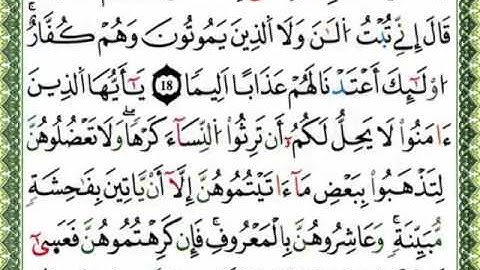 قَالَ إِنِّے تُبْتُ اُ۬لَٰنَ وَلَا اَ۬لذِينَ يَمُوتُونَ وَهُمْ كُفَّارٌۖ
اُوْلَٰٓئِكَ أَعْتَدْنَا لَهُمْ عَذَاباً اَلِيماًۖ 18 يَٰٓأَيُّهَا اَ۬لذِينَ
ءَامَنُواْ لَا يَحِلُّ لَكُمُۥٓ أَن تَرِثُواْ اُ۬لنِّسَآءَ كَرْهاًۖ وَلَا تَعْضُلُوهُنَّ
لِتَذْهَبُواْ بِبَعْضِ مَآ ءَاتَيْتُمُوهُنَّ إِلَّآ أَنْ يَّاتِينَ بِفَٰحِشَةٖ
مُّبَيَّنَةٖۖ وَعَاشِرُوهُنَّ بِالْمَعْرُوفِۖ فَإِن كَرِهْتُمُوهُنَّ فَعَسَىٰٓ